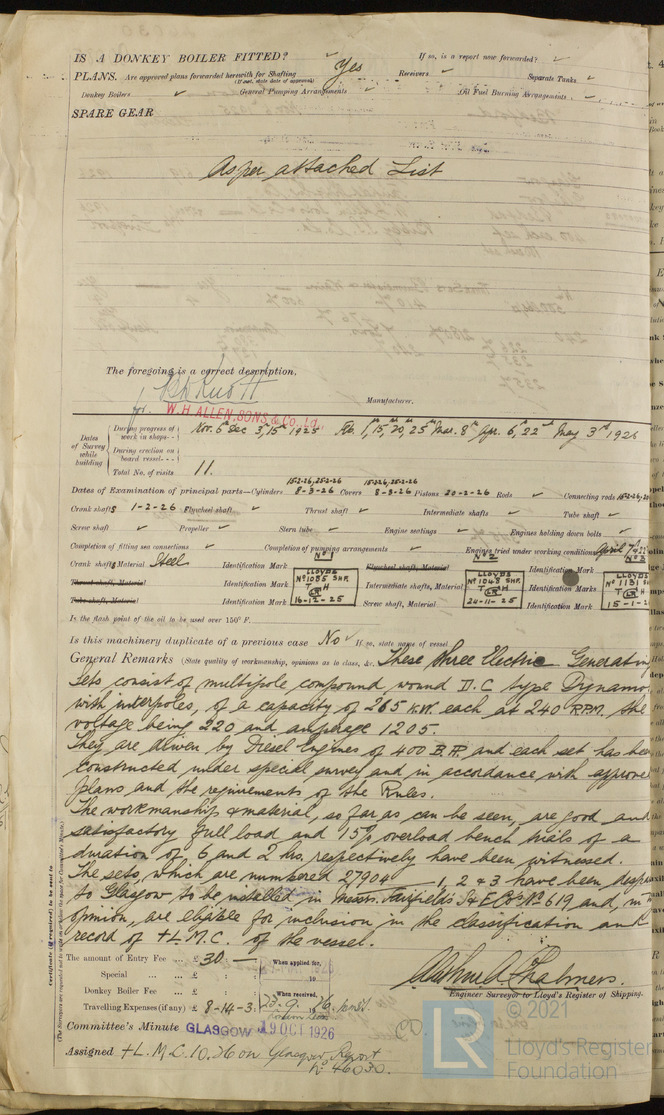 IS A DONKEY BOILER FITTED? ✓ If so, is a report now forwarded? ✓
PLANS. Are approved plans forwarded herewith for Shafting Yes Receivers ✓ Separate Tanks ✓
(If not, state date of approval)
Donkey Boilers ✓ General Pumping Arrangements ✓ Oil Fuel Burning Arrangements ✓
SPARE GEAR
As per attached List
The foregoing is a correct description,
for
W.H ALLEN, SONS & Co., Ltd., Manufacturer.
Dates of Survey while building
During progress of work in shops-- Nov. 6th Dec 3, 15th 1925 Feb. 1, 15, 20, 25th Mar. 8th Apr. 6, 22nd May 3rd 1926
During erection on board vessel---
Total No. of visits 11.
15-2-26, 25-2-26 15-2-26, 25-2-26
Dates of Examination of principal parts—Cylinders 8-3-26 Covers 8-3-26 Pistons 20-2-26 Rods ✓ Connecting rods
Crank shafts 1-2-26 Flywheel shaft ✓ Thrust shaft ✓ Intermediate shafts ✓ Tube shaft ✓
Screw shaft ✓ Propeller ✓ Stern tube ✓ Engine seatings ✓ Engines holding down bolts ✓
Completion of fitting sea connections ✓ Completion of pumping arrangements ✓ Engines tried under working conditions April
Crank shafts Material Steel Identification Mark No 1 LLOYDS No 1085 SHF. T LR H 16-12-25 Flywheel shaft, Material Identification Mark No 2 LLOYDS No 1048 SHF. T LR H 24-11-25
Thrust shaft, Material Identification Mark Intermediate shafts, Material Identification Marks No 3 LLOYDS No 1131 T LR 15-1-2
Tube shaft, Material Identification Mark Screw shaft, Material Identification Mark
Is the flash point of the oil to be used over 150° F.
Is this machinery duplicate of a previous case No ✓ If so, state name of vessel
General Remarks (State quality of workmanship, opinions as to class, &c. These three Electric Generating
sets consist of multipole compound wound D.C type Dynamo
with interpoles, of a capacity of 265 K.W. each at 240 RPM. the
voltage being 220 and amperage 1205.
They are driven by Diesel Engines of 400 B.H.P. and each set has been
constructed under special survey and in accordance with approve
plans and the requirements of the Rules.
The workmanship & material, so far as can be seen, are good and
satisfactory full load and 15% overload bench trials of a
duration of 6 and 2 hrs. respectively have been witnessed.
The sets, which are numbered 27904 1, 2 & 3 have been desp
to Glasgow to be installed in Messrs. Fairfields S & E Co's No 619 and, in
opinion, are eligible for inclusion in the classification and
record of + L.M.C. of the vessel.
Certificate (if required) to be sent to
(The Surveyors are requested not to write on or below the space for Committee's Minute.)
The amount of Entry Fee ... £ 30 : — When applied for,
Special ... £ : : 19
Donkey Boiler Fee ... £ : : When received,
Travelling Expenses (if any) £ 8-14-3. 23.9.1926.
Arthur A Chalmers.
Engineer Surveyor to Lloyd's Register of Shipping.
Committee's Minute GLASGOW 19 OCT 1926
Assigned + L.M.C. 10.26 on Glasgow Report
No 46030.
© 2021
Lloyd's Register
Foundation
LR